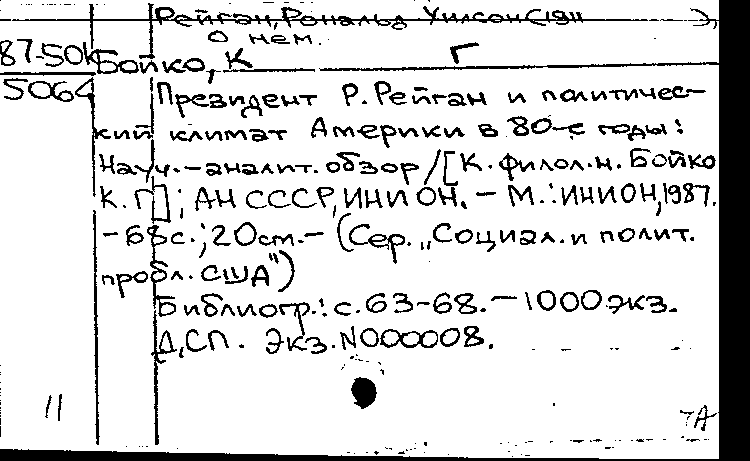 Рейган, Рональд Уилсон (1911 ),
о нем.
87-50к Бойко, К Г
5064 Президент Р. Рейган и политичес-
кий климат Америки в 80-е годы:
Науч.-аналит. обзор / [К. филол. н. Бойко
К. Г]; АН СССР, ИНИОН. - М.: ИНИОН, 1987.
- 68 с.; 20 см. - (Сер. „Социал. и полит.
пробл. США")
Библиогр.: с. 63-68. - 1000 экз.
ДСП. Экз. N000008.
11
7А